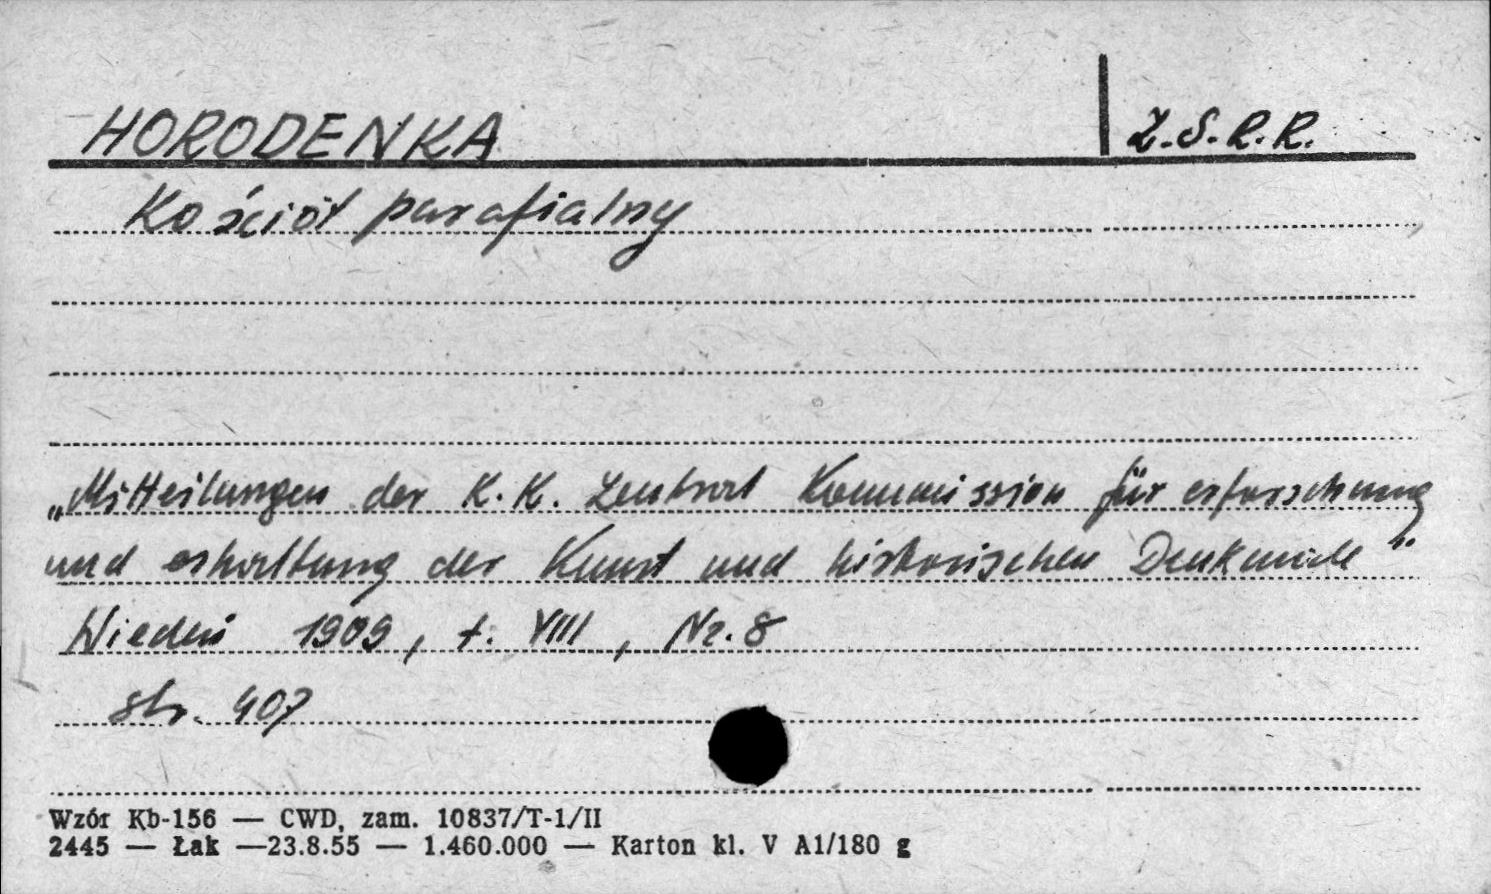 HORODENKA
Z.S.R.R.
Kościół parafialny
„Mitteilungen der K.K. Zentral Kommission für erforschung
und erhaltung der Kunst und historischen Denkmale"
Wiedeń 1909, t. VIII, Nr. 8
str. 407
Wzór Kb-156 — CWD, zam. 10837/T-1/II
2445 — Łak —23.8.55 — 1.460.000 — Karton kl. V A1/180 g